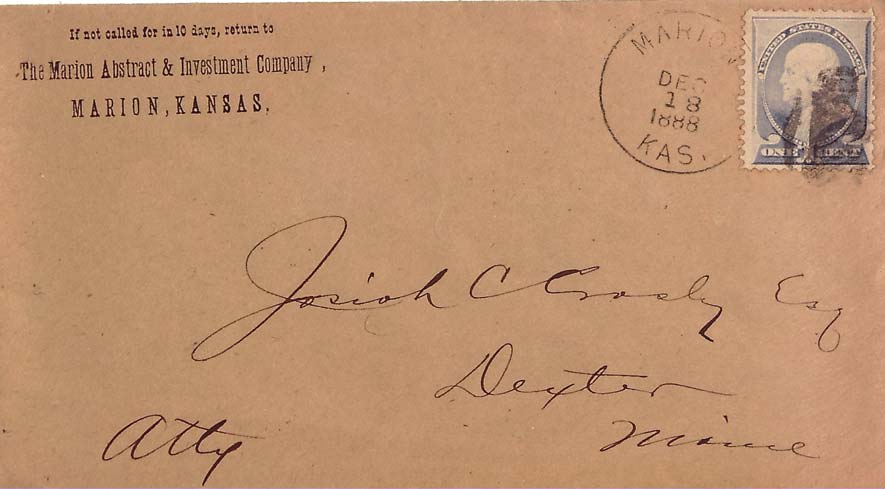 If not called for in 10 days, return to
The Marion Abstract & Investment Company,
MARION, KANSAS.
MARION
DEC
18
1888
KAS.
UNITED STATES POSTAGE
ONE CENT
Josiah C Crosby Esq
Dexter
Maine
Atty